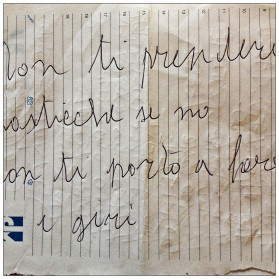 Non ti prendere
pastiche se no
non ti porto a fare
i giri